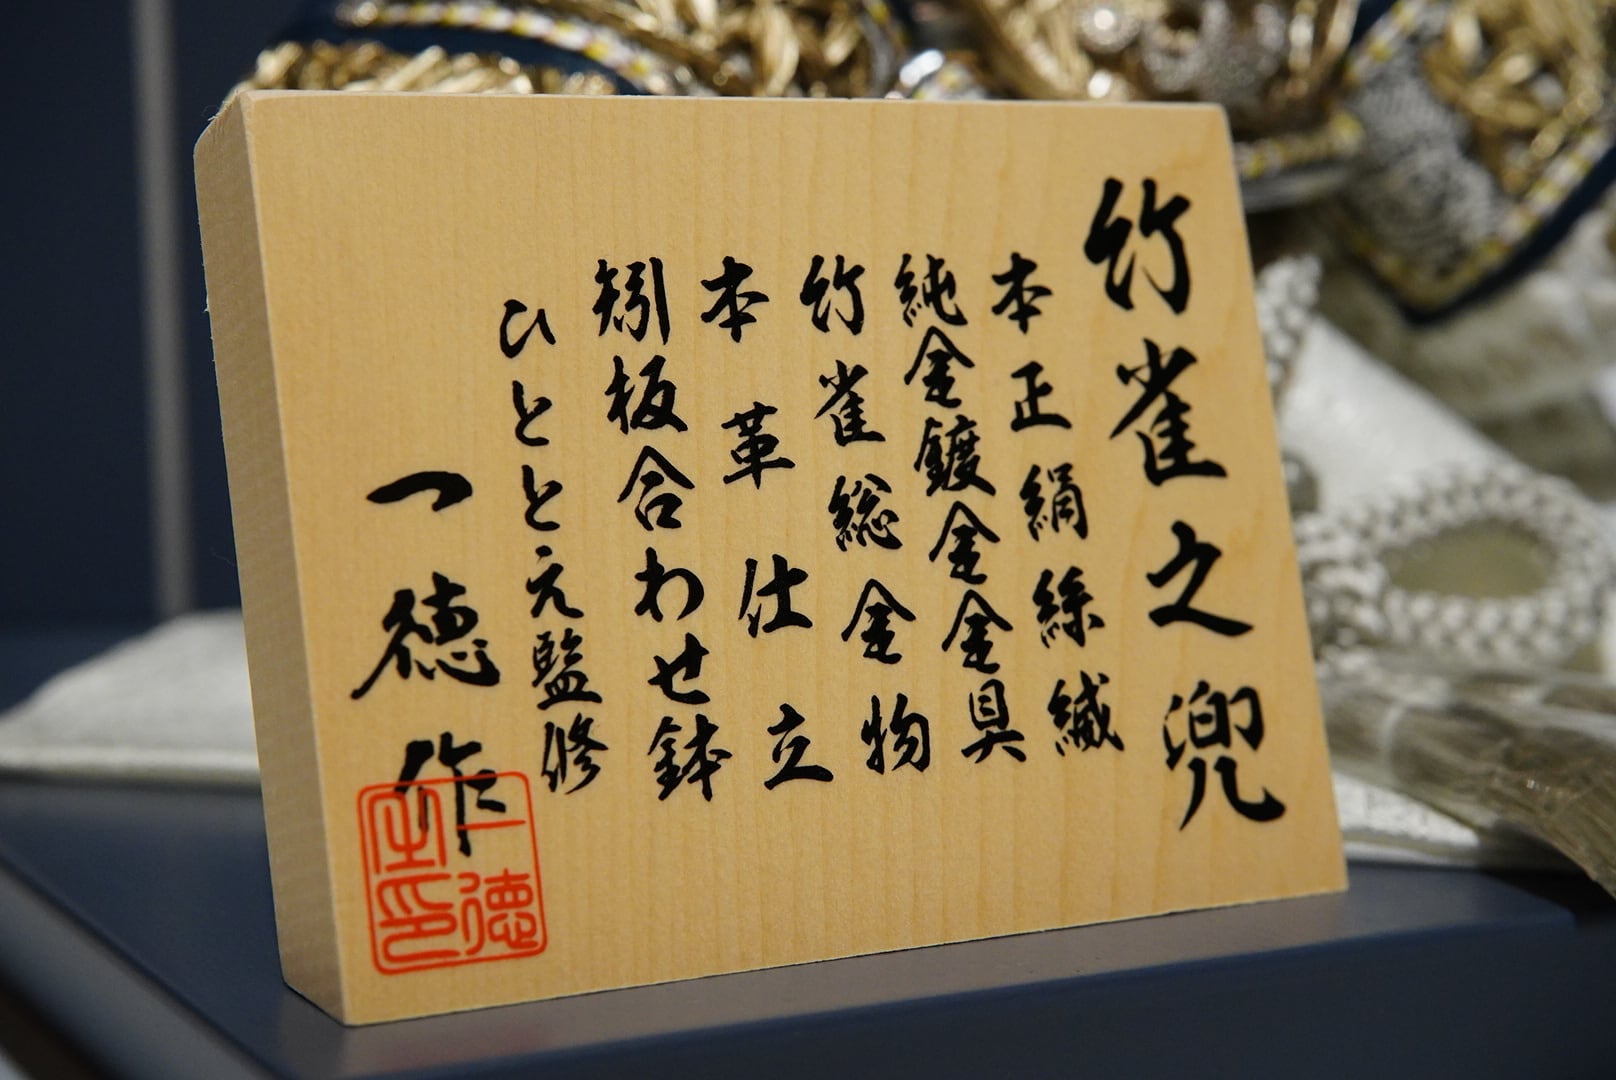 竹雀之兜
本正絹絲縅
純金鍍金金具
竹雀総金物
本革仕立
矧板合わせ鉢
ひととえ監修
一徳作
一徳之印